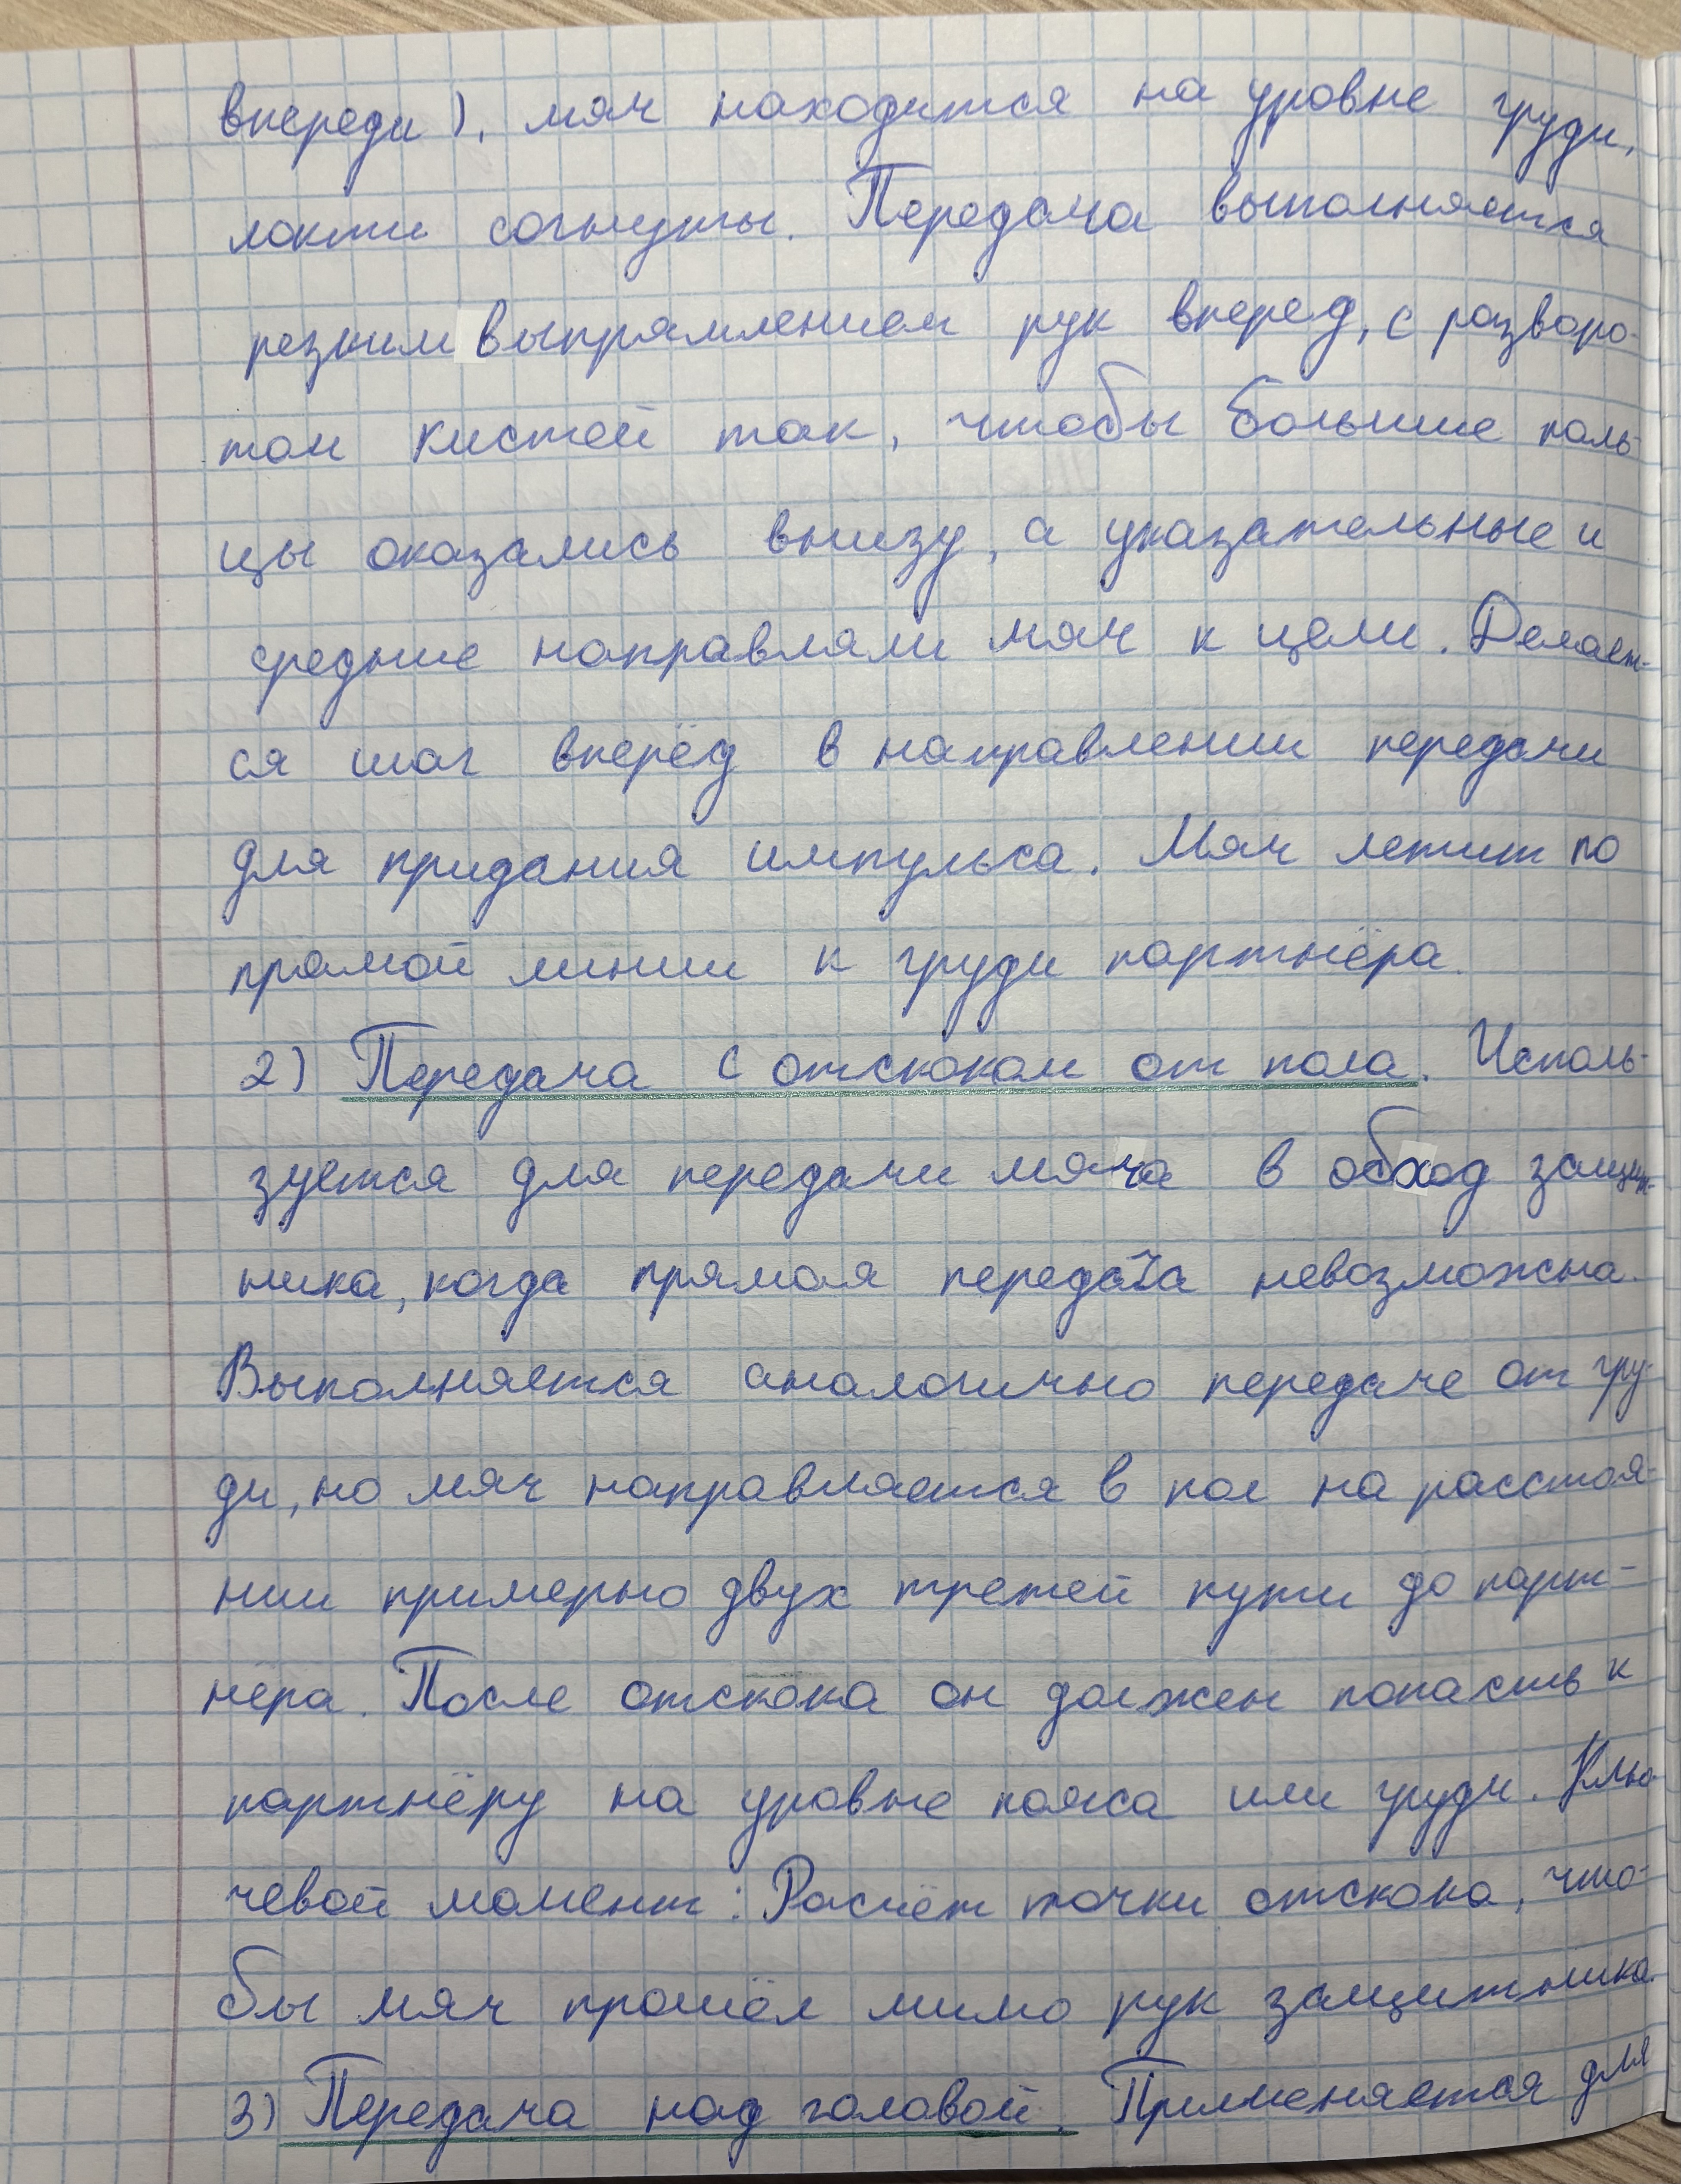 впереди), мяч находится на уровне груди,
локти согнуты. Передача выполняется
резким выпрямлением рук вперед, с разворо-
том кистей так, чтобы большие паль-
цы оказались внизу, а указательные и
средние направляли мяч к цели. Делает-
ся шаг вперёд в направлении передачи
для придания импульса. Мяч летит по
прямой линии к груди партнёра.
2) Передача с отскоком от пола. Исполь-
зуется для передачи мяча в обход защит-
ника, когда прямая передача невозможна.
Выполняется аналогично передаче от гру-
ди, но мяч направляется в пол на расстоя-
нии примерно двух третей пути до парт-
нёра. После отскока он должен попасть к
партнёру на уровне пояса или груди. Клю-
чевой момент: Расчёт точки отскока, что-
бы мяч прошёл мимо рук защитника.
3) Передача над головой. Применяется для